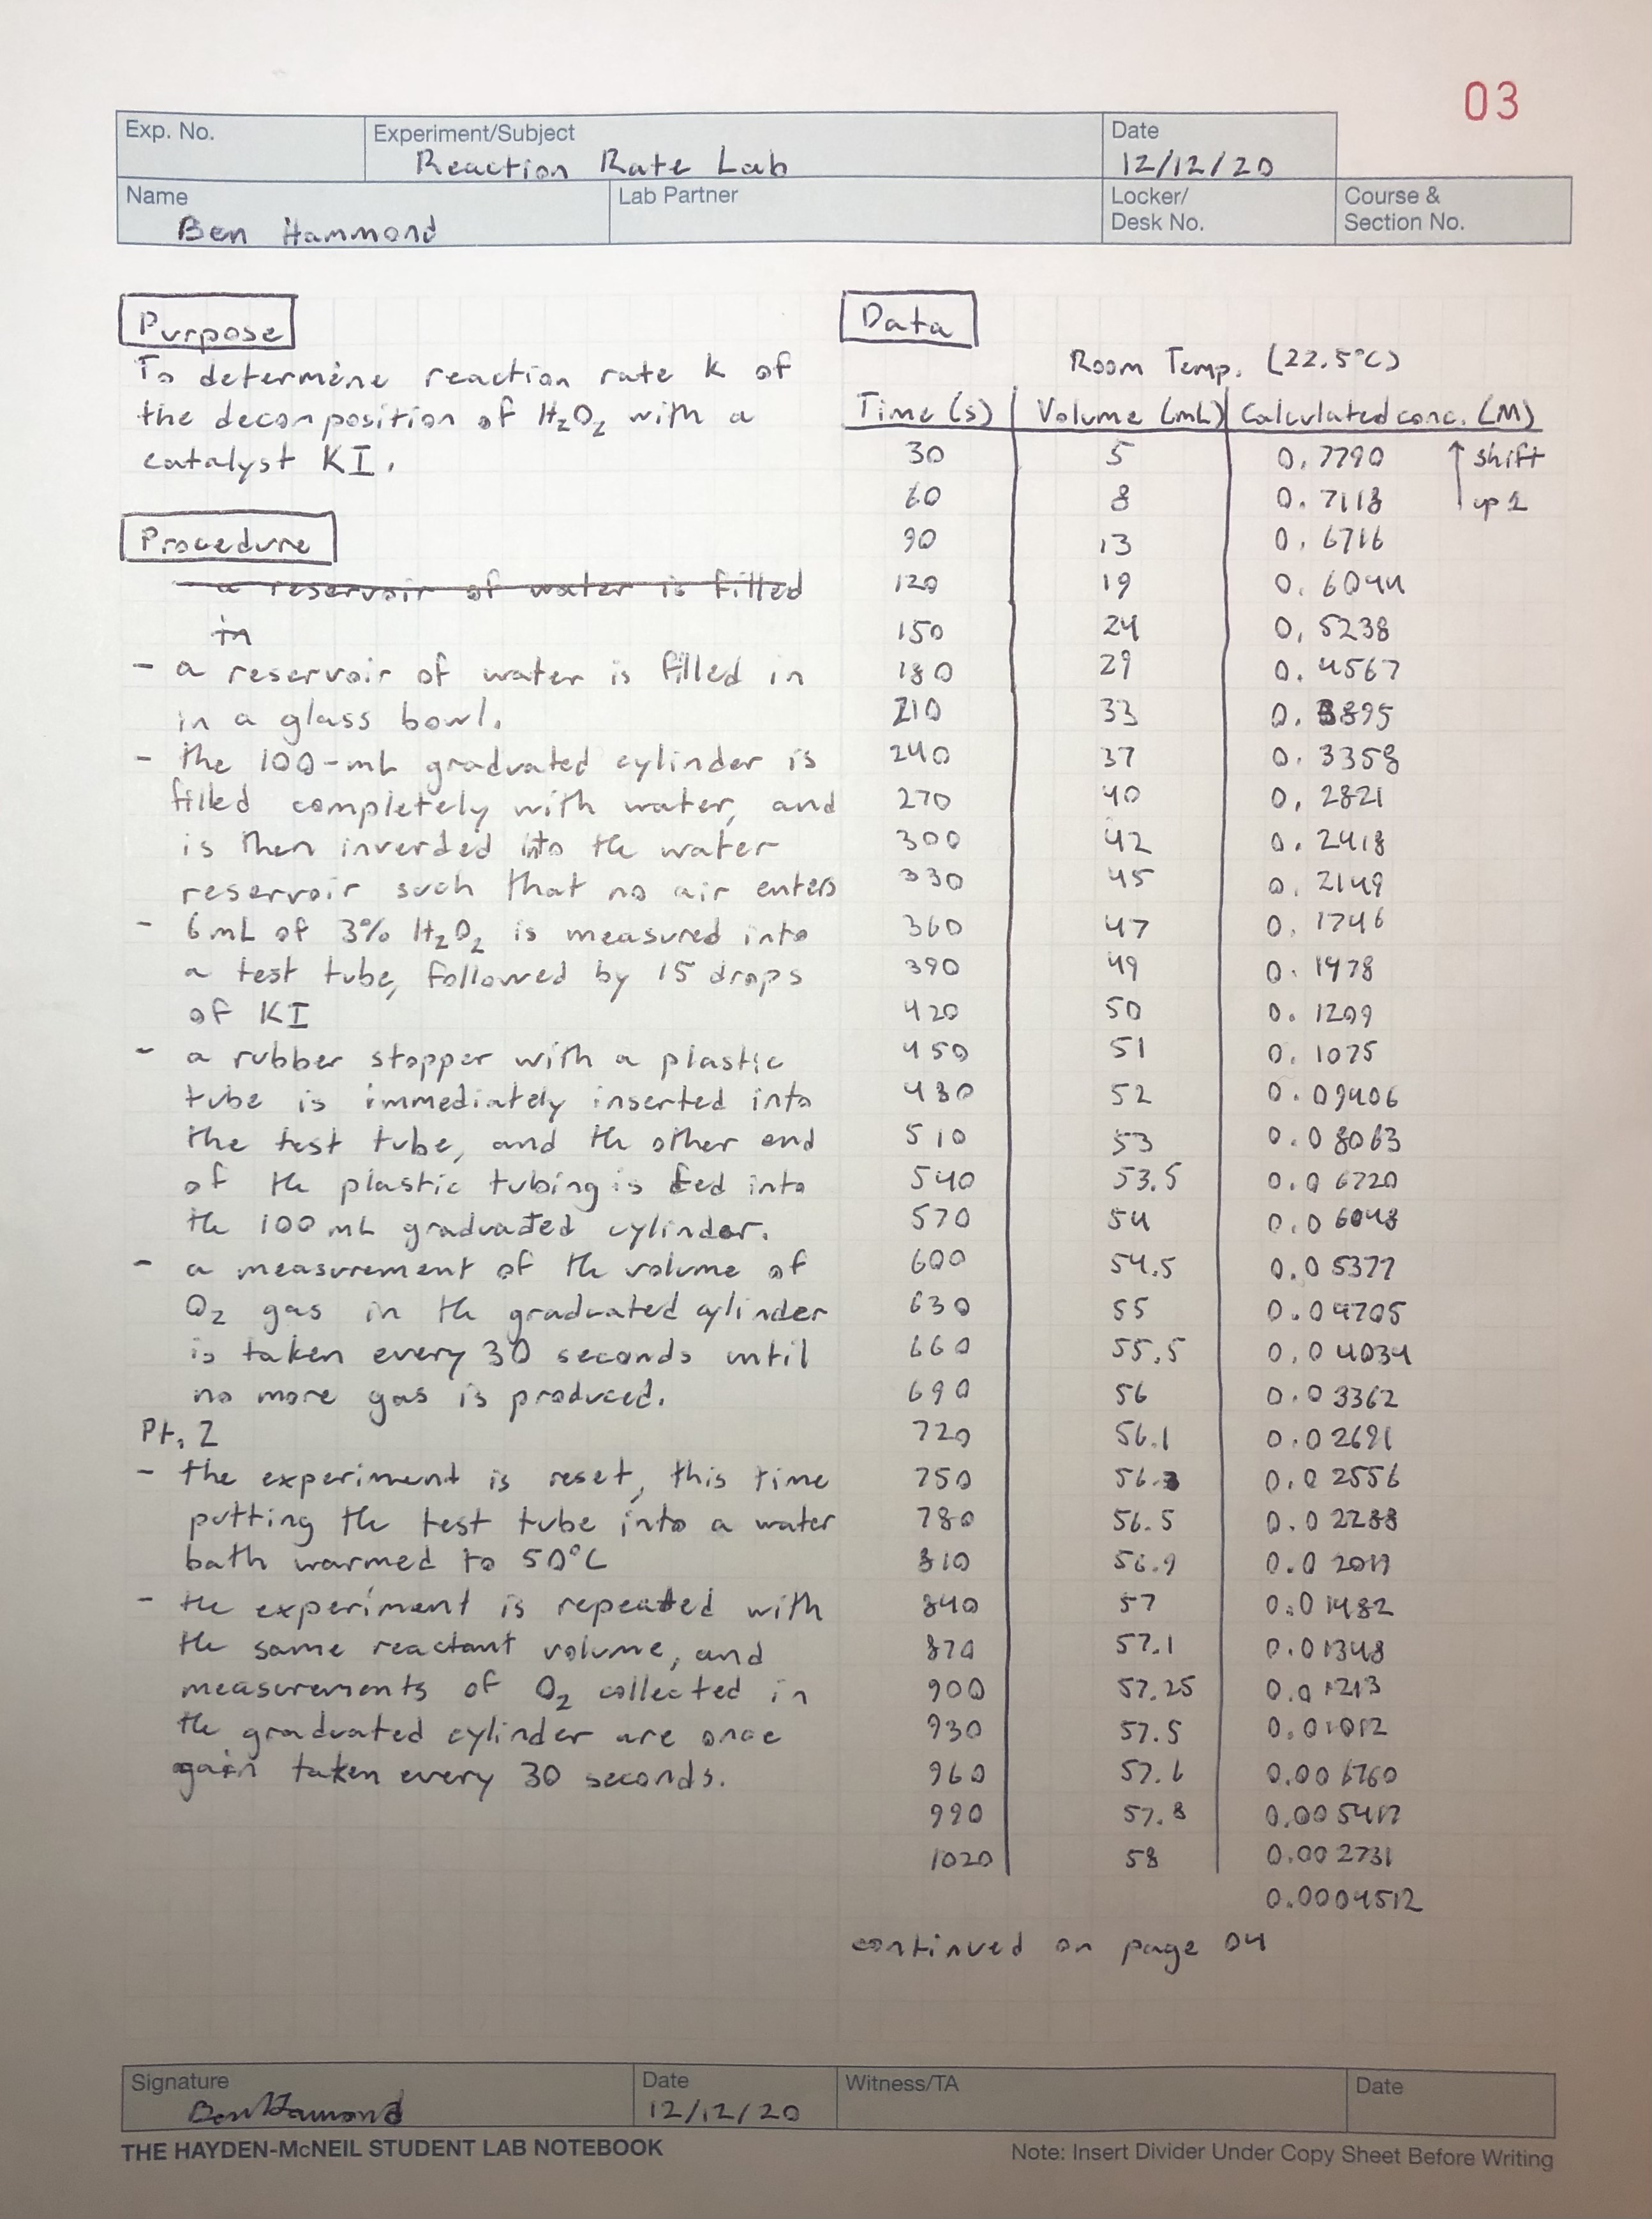 03
Exp. No.
Experiment/Subject
Reaction Rate Lab
Date
12/12/20
Name
Ben Hammond
Lab Partner
Locker/
Desk No.
Course &
Section No.
Purpose
To determine reaction rate k of
the decomposition of H₂O₂ with a
catalyst KI.
Procedure
a reservoir of water is filled
in
- a reservoir of water is filled in
in a glass bowl.
- the 100-mL graduated cylinder is
filled completely with water, and
is then inverded into the water
reservoir such that no air enters
- 6mL of 3% H₂O₂ is measured into
a test tube, followed by 15 drops
of KI
- a rubber stopper with a plastic
tube is immediately inserted into
the test tube, and the other end
of the plastic tubing is fed into
the 100 mL graduated cylinder.
- a measurement of the volume of
O₂ gas in the graduated cylinder
is taken every 30 seconds until
no more gas is produced.
Pt. 2
- the experiment is reset, this time
putting the test tube into a water
bath warmed to 50°C
- the experiment is repeated with
the same reactant volume, and
measurements of O₂ collected in
the graduated cylinder are once
again taken every 30 seconds.
Data
Room Temp. (22.5°C)
Time (s) Volume (mL) Calculated conc. (M)
30 5 0.7790 ↑ shift
60 8 0.7118 up 1
90 13 0.6716
120 19 0.6044
150 24 0.5238
180 29 0.4567
210 33 0.3895
240 37 0.3358
270 40 0.2821
300 42 0.2418
330 45 0.2149
360 47 0.1746
390 49 0.1478
420 50 0.1209
450 51 0.1075
480 52 0.09406
510 53 0.08063
540 53.5 0.06720
570 54 0.06048
600 54.5 0.05377
630 55 0.04705
660 55.5 0.04034
690 56 0.03362
720 56.1 0.02691
750 56.3 0.02556
780 56.5 0.02288
810 56.9 0.02019
840 57 0.01482
870 57.1 0.01348
900 57.25 0.01213
930 57.5 0.01012
960 57.6 0.006760
990 57.8 0.005417
1020 58 0.002731
0.0004512
continued on page 04
Signature
Ben Hammond
Date
12/12/20
Witness/TA
Date
THE HAYDEN-McNEIL STUDENT LAB NOTEBOOK
Note: Insert Divider Under Copy Sheet Before Writing